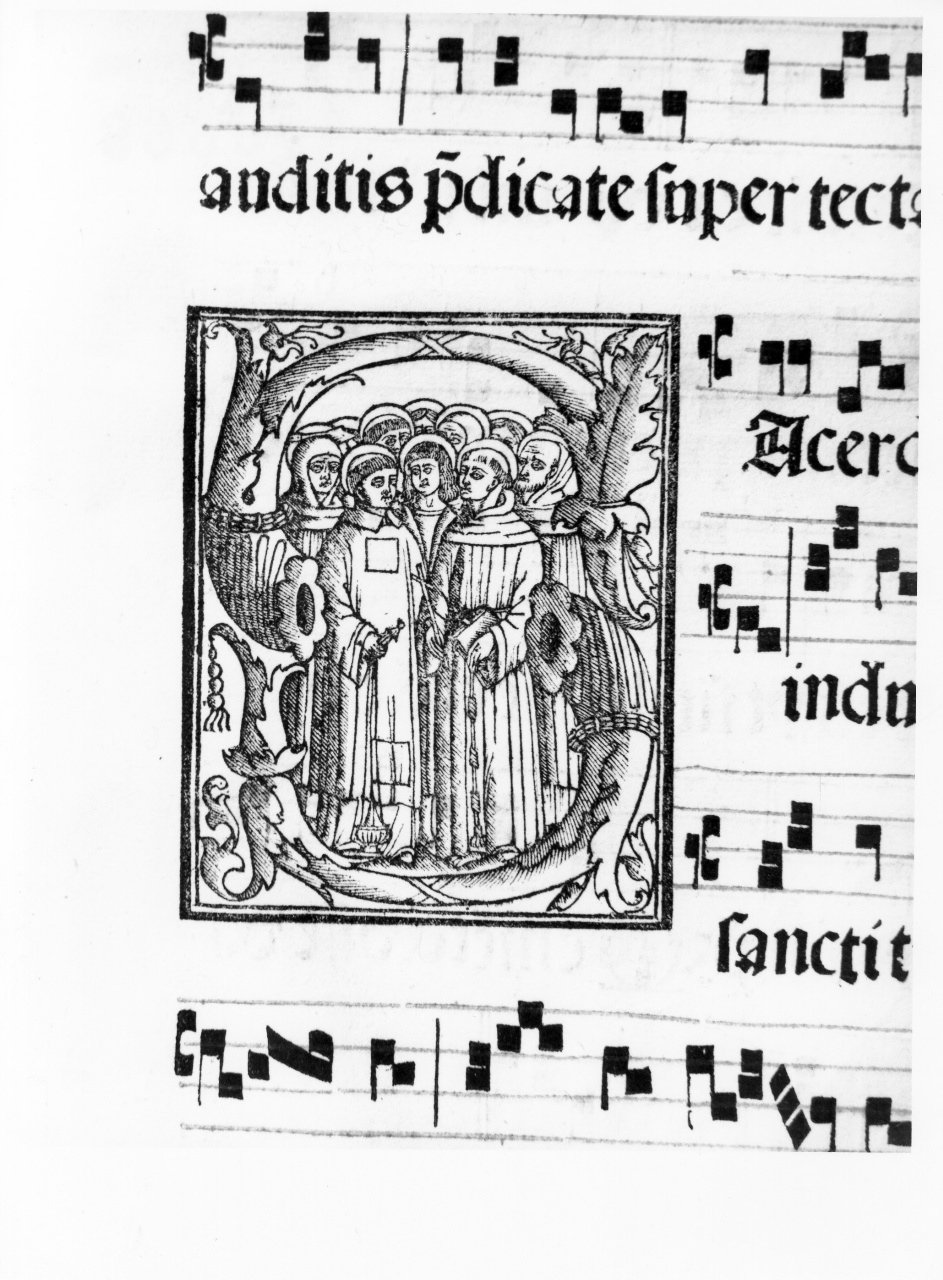 auditis p̄dicate ſuper tect
S
Acerd
indu
ſanctit